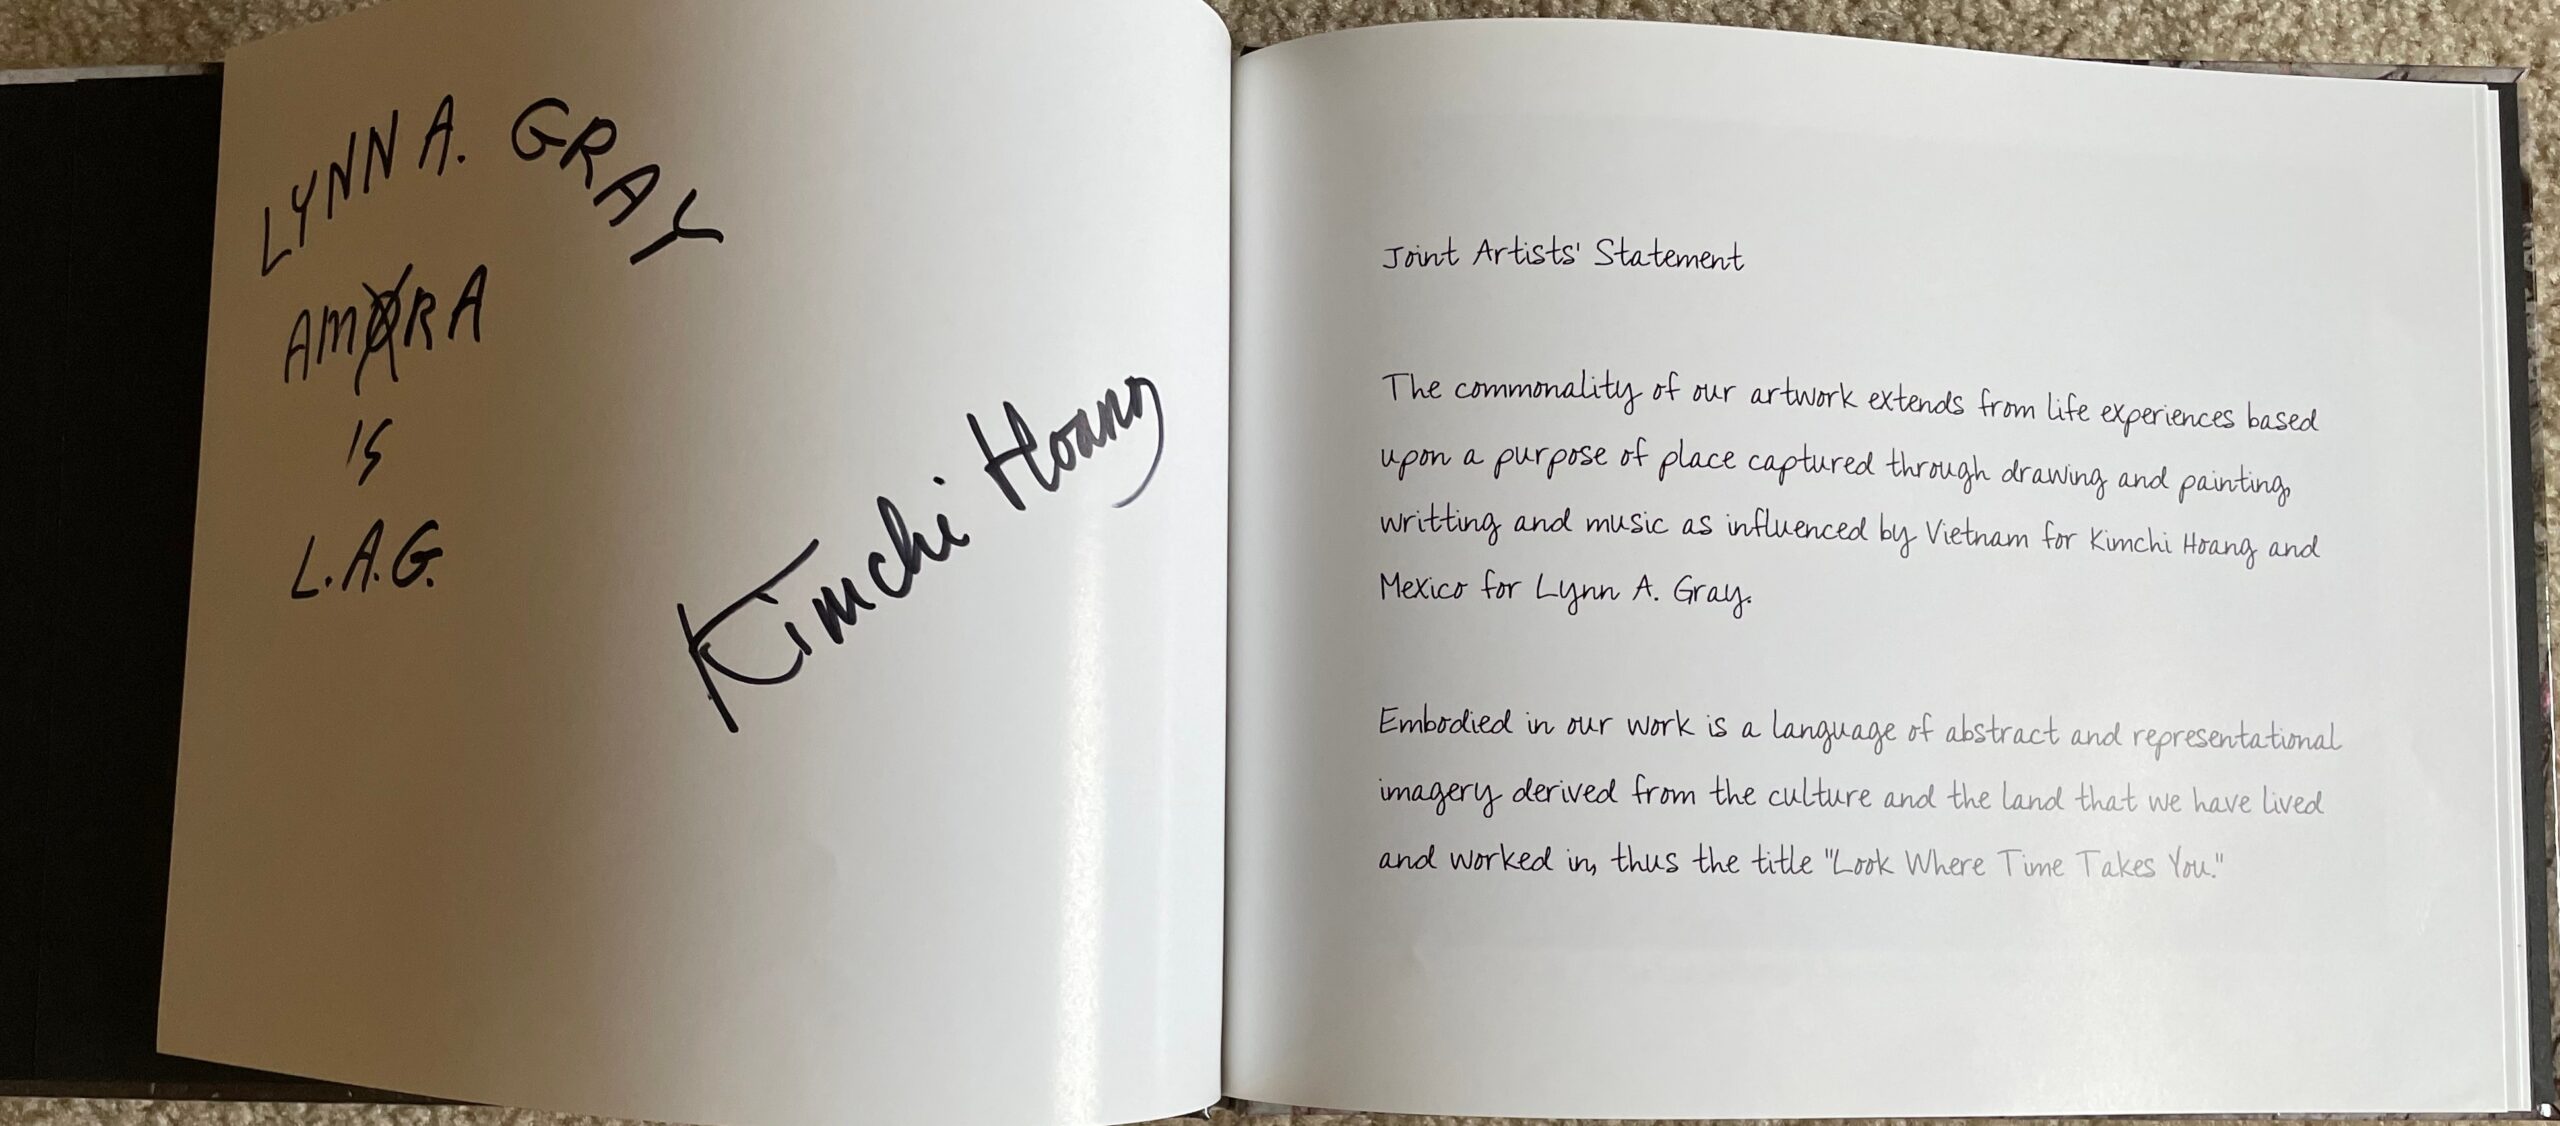 LYNN A. GRAY
AMORA
IS
L.A.G.
Kimchi Hoang
Joint Artists' Statement
The commonality of our artwork extends from life experiences based
upon a purpose of place captured through drawing and painting,
writting and music as influenced by Vietnam for Kimchi Hoang and
Mexico for Lynn A. Gray.
Embodied in our work is a language of abstract and representational
imagery derived from the culture and the land that we have lived
and worked in, thus the title "Look Where Time Takes You."